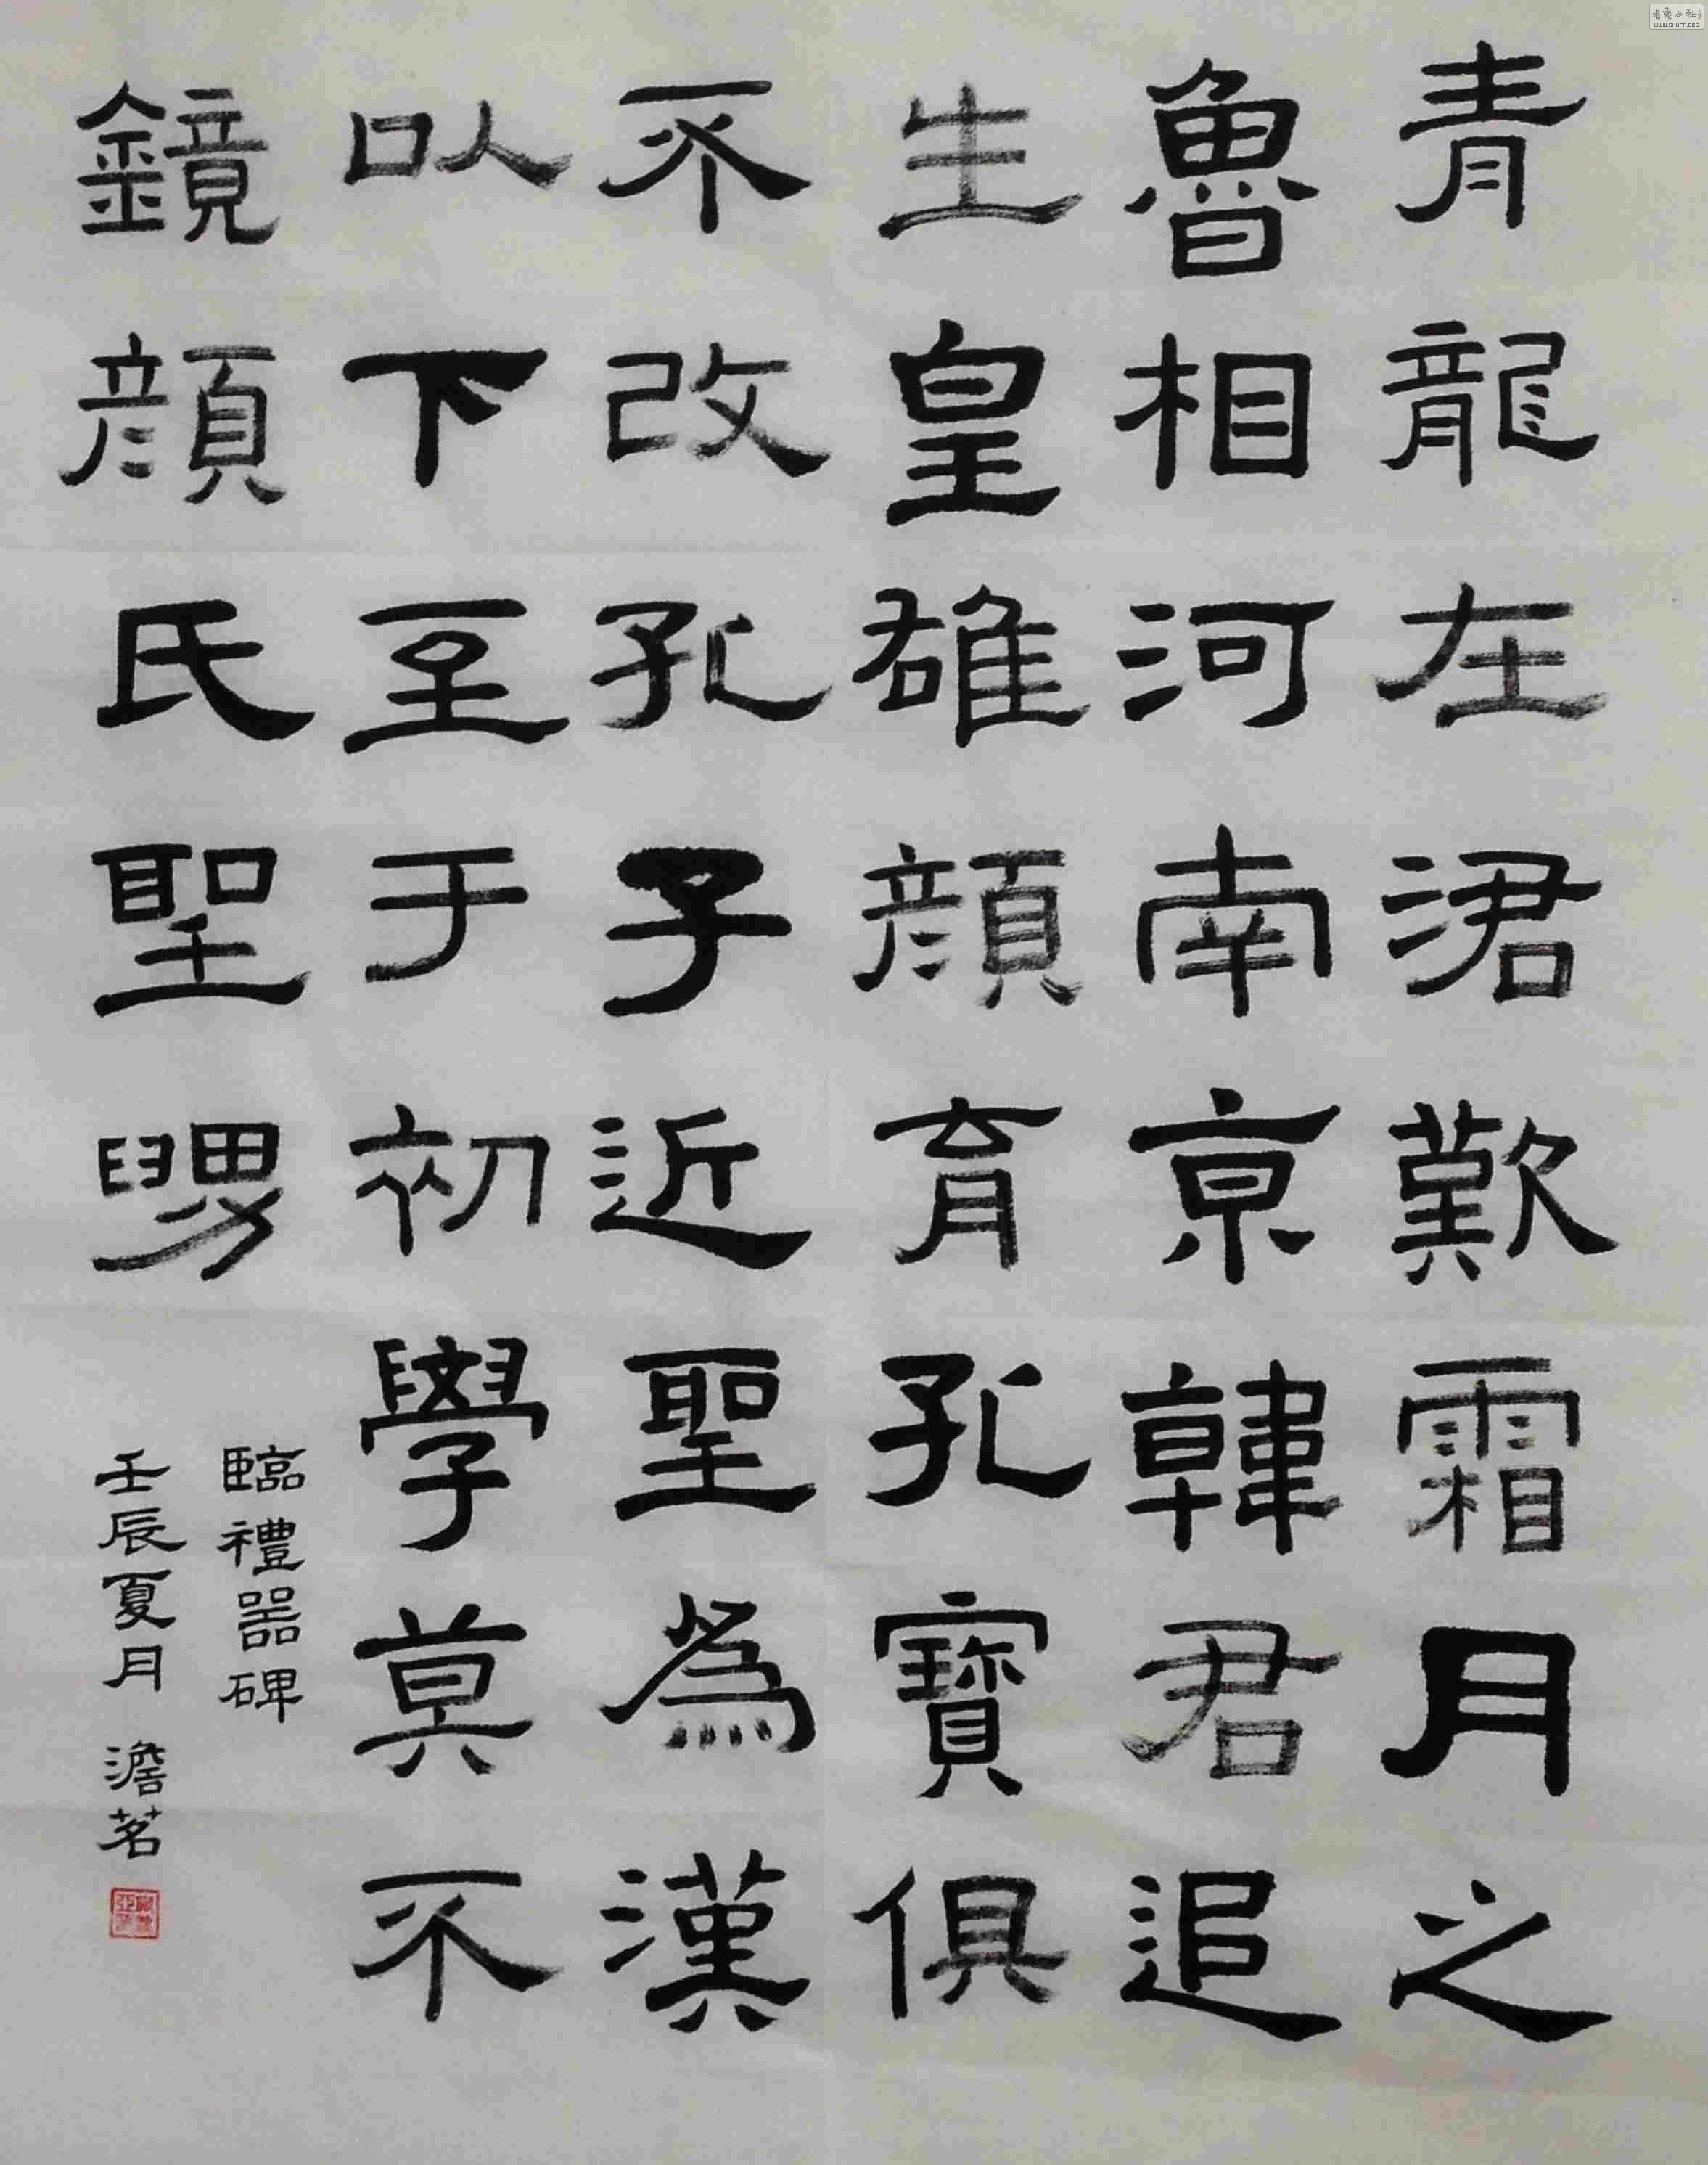 青龍在涒歎霜月之
魯相河南京韓君追
生皇雄顏育孔寶俱
不改孔子近聖為漢
以下至于初學莫不
鏡顏氏聖舅
臨禮器碑
壬辰夏月 澹茗
WWW.SHUFA.ORG